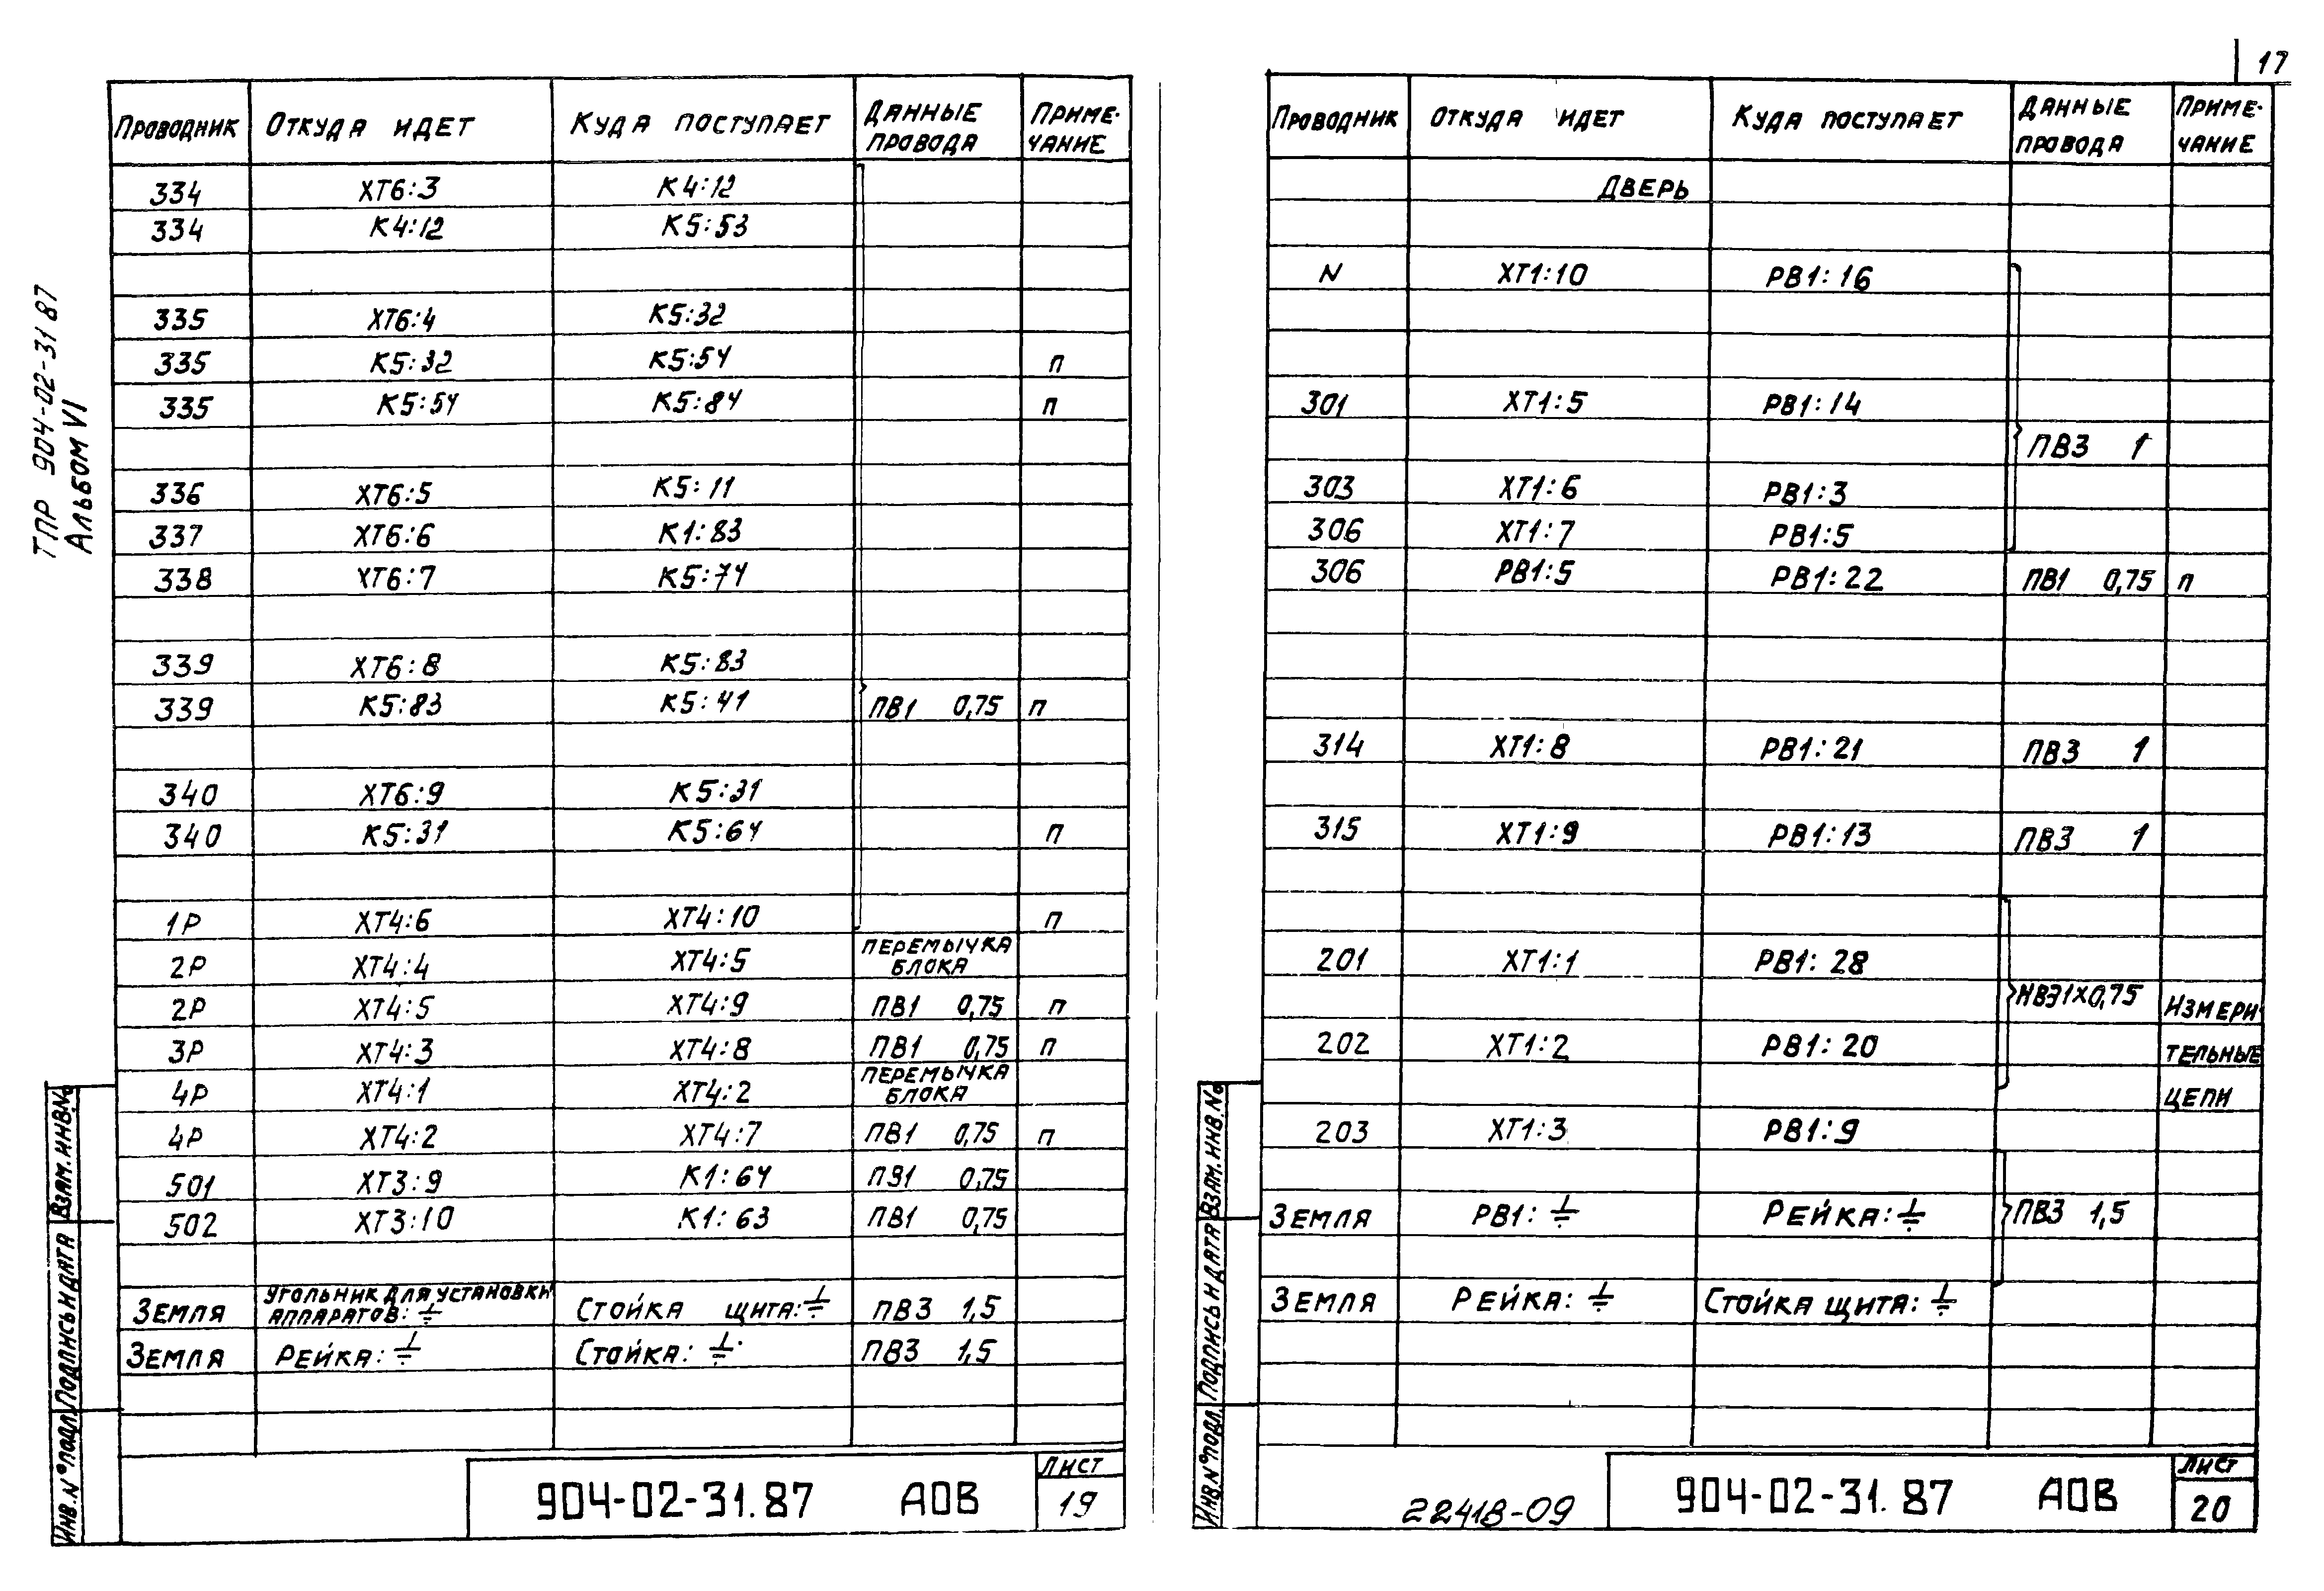 17
ТПР 904-02-31 87
Альбом VI
Проводник Откуда идет Куда поступает Данные провода Приме-чание
334 ХТ6:3 К4:12
334 К4:12 К5:53
335 ХТ6:4 К5:32
335 К5:32 К5:54 п
335 К5:54 К5:84 п
336 ХТ6:5 К5:11
337 ХТ6:6 К1:83
338 ХТ6:7 К5:74
339 ХТ6:8 К5:83
339 К5:83 К5:41 ПВ1 0,75 п
340 ХТ6:9 К5:31
340 К5:31 К5:64 п
1Р ХТ4:6 ХТ4:10 п
2Р ХТ4:4 ХТ4:5 Перемычка блока
2Р ХТ4:5 ХТ4:9 ПВ1 0,75 п
3Р ХТ4:3 ХТ4:8 ПВ1 0,75 п
4Р ХТ4:1 ХТ4:2 Перемычка блока
4Р ХТ4:2 ХТ4:7 ПВ1 0,75 п
501 ХТ3:9 К1:64 ПВ1 0,75
502 ХТ3:10 К1:63 ПВ1 0,75
Земля Угольник для установки аппаратов: ⏚ Стойка щита: ⏚ ПВ3 1,5
Земля Рейка: ⏚ Стойка: ⏚ ПВ3 1,5
Взам. инв. №
Подпись и дата
Инв. № подл.
904-02-31.87 АОВ
Лист
19
Проводник Откуда идет Куда поступает Данные провода Приме-чание
Дверь
N ХТ1:10 РВ1:16
301 ХТ1:5 РВ1:14
ПВ3 1
303 ХТ1:6 РВ1:3
306 ХТ1:7 РВ1:5
306 РВ1:5 РВ1:22 ПВ1 0,75 п
314 ХТ1:8 РВ1:21 ПВ3 1
315 ХТ1:9 РВ1:13 ПВ3 1
201 ХТ1:1 РВ1:28
НВЭ1х0,75 Измери-
202 ХТ1:2 РВ1:20 тельные
цепи
203 ХТ1:3 РВ1:9
Земля РВ1: ⏚ Рейка: ⏚ ПВ3 1,5
Земля Рейка: ⏚ Стойка щита: ⏚
Взам. инв. №
Подпись и дата
Инв. № подл.
22418-09
904-02-31.87 АОВ
Лист
20